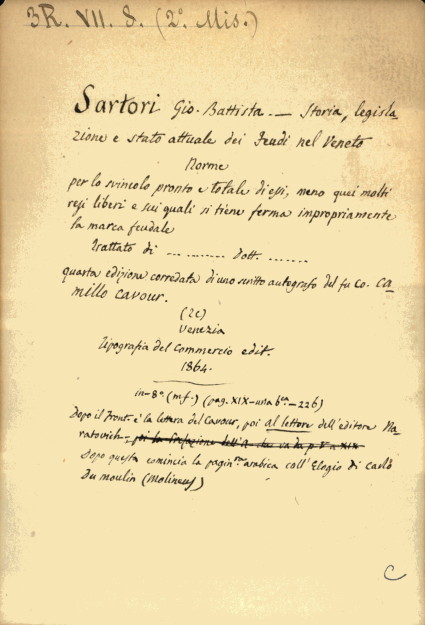 3R. VII. 8. (2° Mis.)
Sartori Gio. Battista — Storia, legisla-
zione e stato attuale dei Feudi nel Veneto
Norme
per lo svincolo pronto e totale di essi, meno quei molti
resi liberi e sui quali si tiene ferma impropriamente
la marca feudale
Trattato di ... ........ Dott. .......
quarta edizione corredata di uno scritto autografo del fu Co. Ca-
millo Cavour.
(2c)
Venezia
Tipografia del Commercio edit.
1864.
in-8° (m.f.) (pag. XIX-una bca-226)
Dopo il front. è la lettera del Cavour, poi al lettore dell'editore Na-
ratovich, poi la Prefazione dell'A. che va da p. V a XIX
Dopo questa comincia la paginne arabica coll'Elogio di Carlo
Du moulin (Molineus)
C